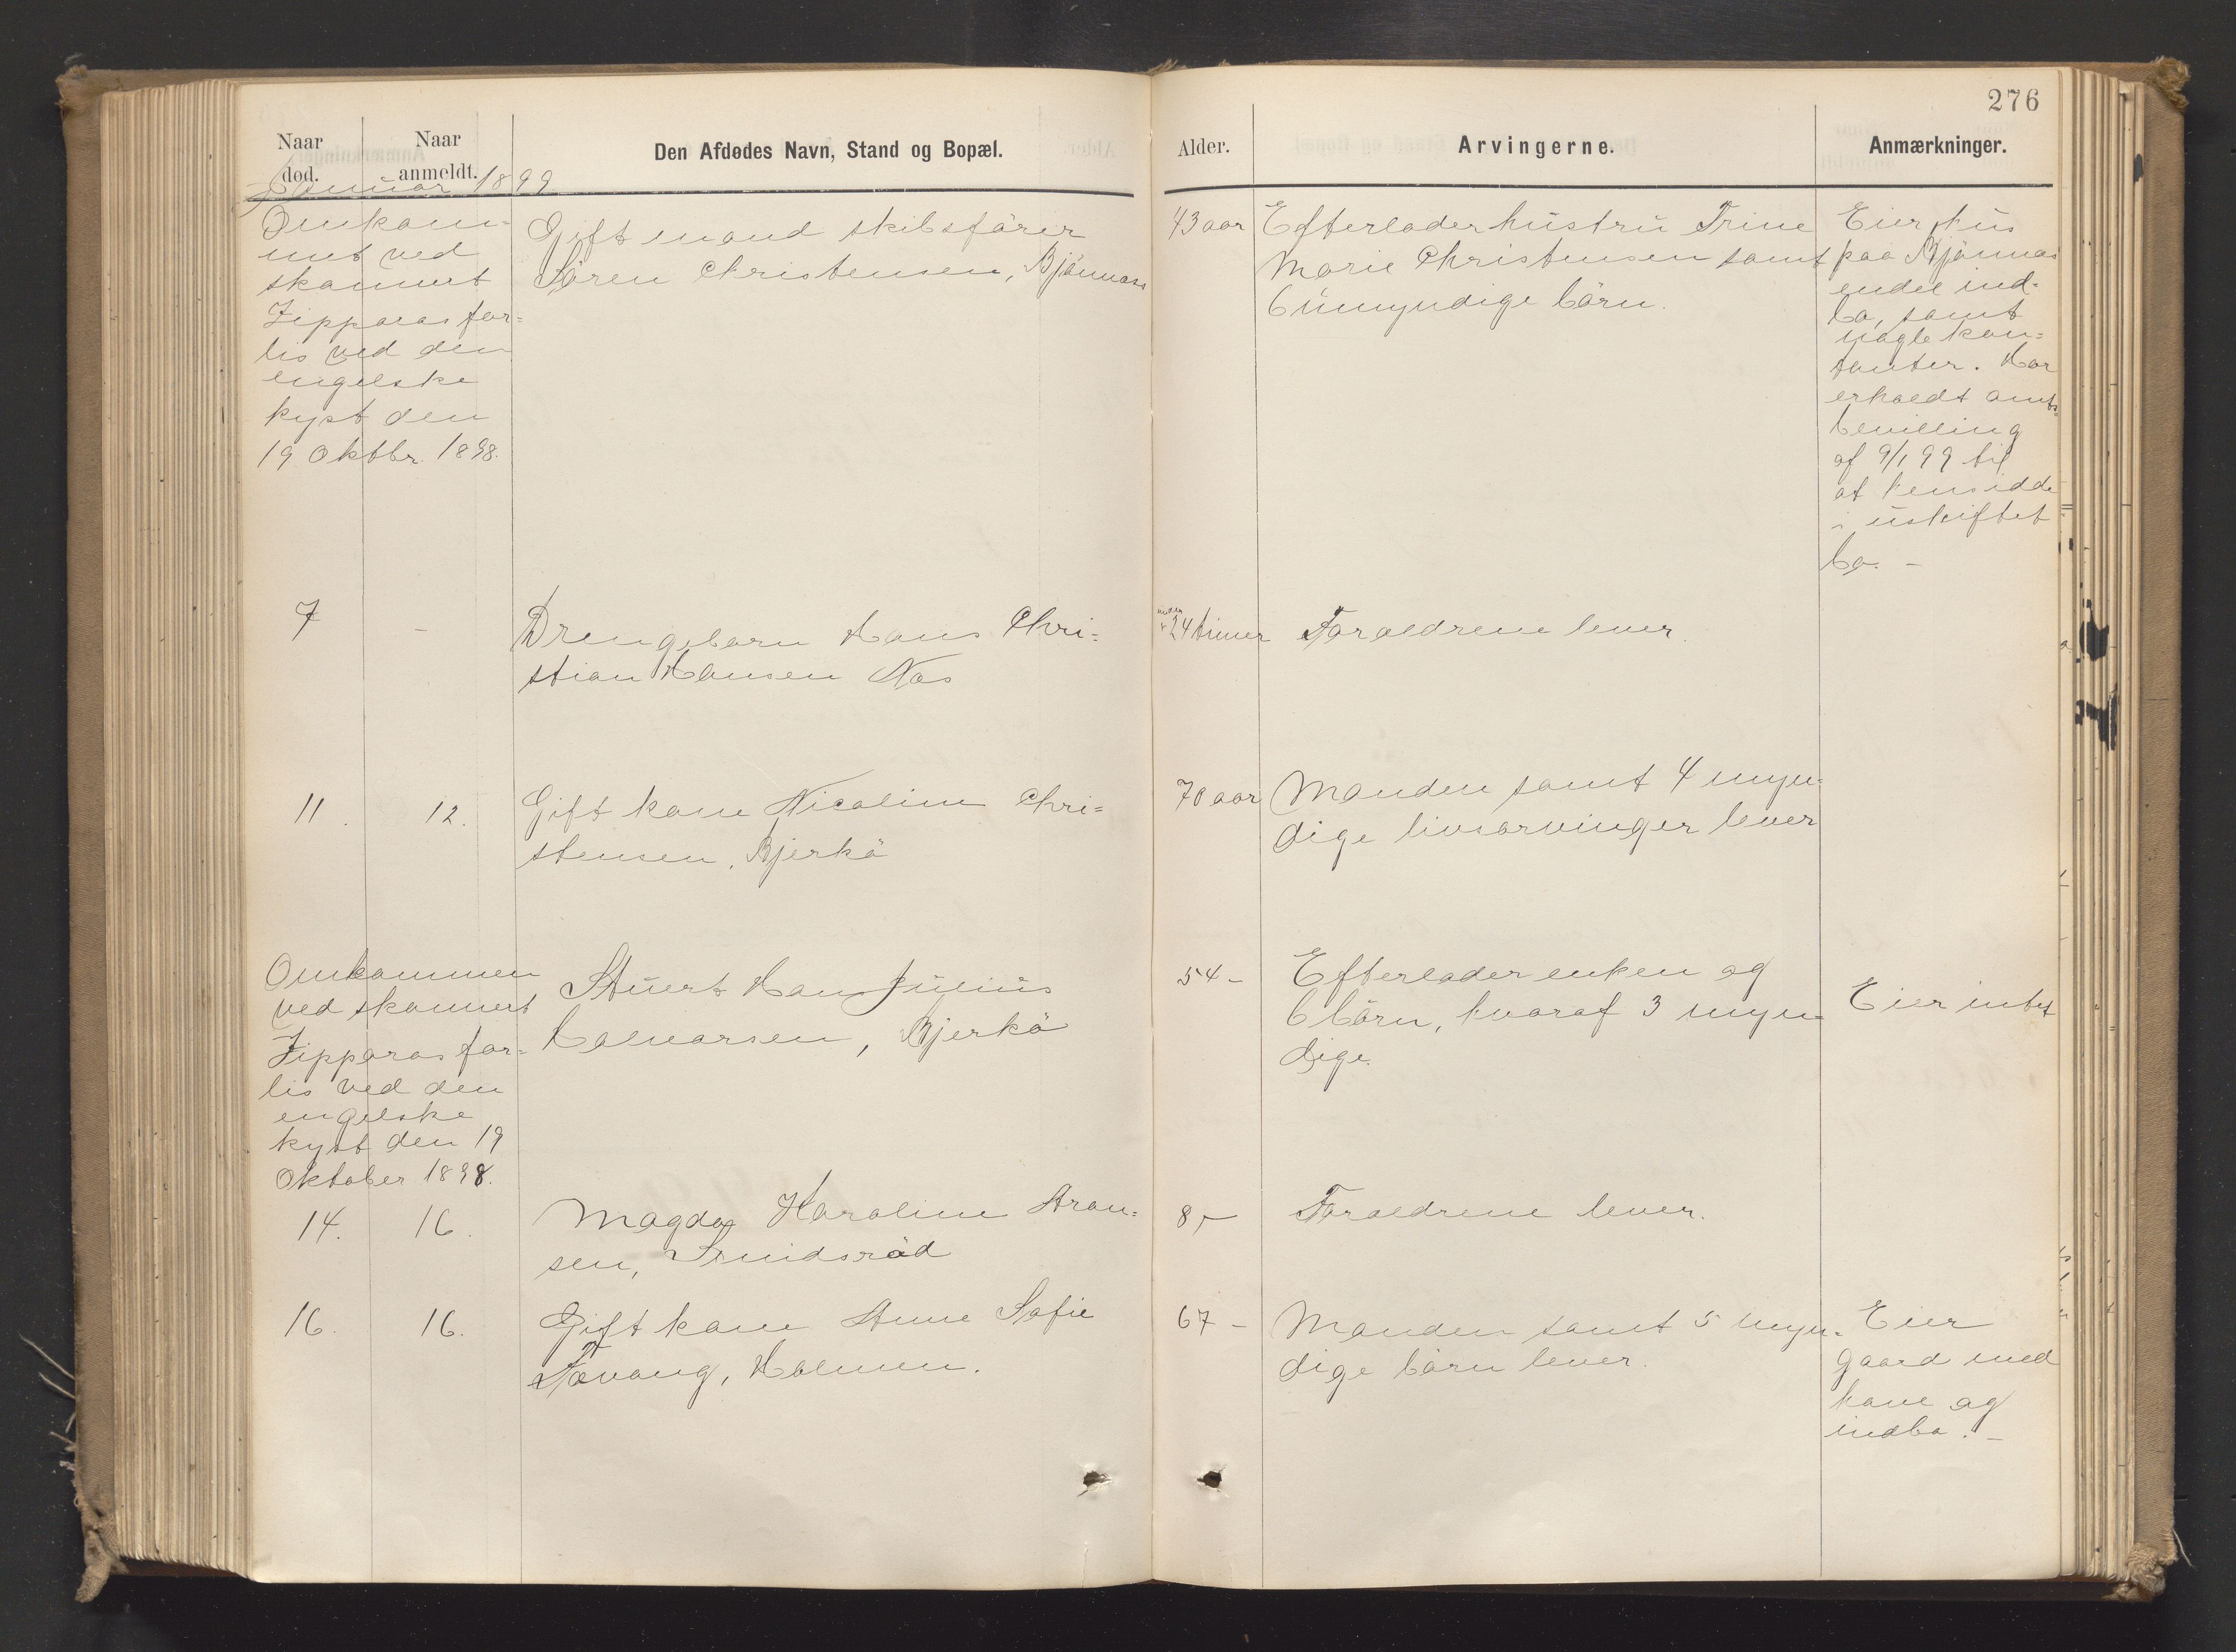 276
Naar død.
Naar anmeldt.
Den Afdødes Navn, Stand og Bopæl.
Alder.
Arvingerne.
Anmærkninger.
Januar 1899
Omkom=
met ved
skonnert
Zipporas for=
lis ved den
engelske
kyst den
19 Oktbr. 1898.
Gift mand skibsfører
Sören Christensen, Bjönnæs
43 aar
Efterlader hustru Trine
Marie Christensen samt
6 umyndige börn.
Eier hus
paa Bjönnæs
endel ind-
bo, samt
nogle kon=
tanter. Har
erholdt amts=
bevilling
af 9/1 99 til
at hensidde
i uskiftet
bo. -
7
-
Drengebarn Hans Chri=
stian Hansen Næs
under
24 timer
Foraeldrene lever.
11.
12.
Gift kone Nicoline Chri=
stensen, Bjerkö
70 aar
Manden samt 4 myn=
dige livsarvinger lever
Omkommen
ved skonnert
Zipporas for=
lis ved den
engelske
kyst den 19
Oktober 1898.
Stuert Hans Julius
Halvorsen, Bjerkö
54 -
Efterlader enken og
6 börn, hvoraf 3 myn=
dige.
Eier intet
14.
16.
Magda Karoline Aron=
sen,
8 -
Foraeldrene lever.
16.
16.
Gift kone Anne Sofie
Holmen.
67 -
Manden samt 5 myn=
dige börn lever.
Eier
gaard med
have og
indbo. -